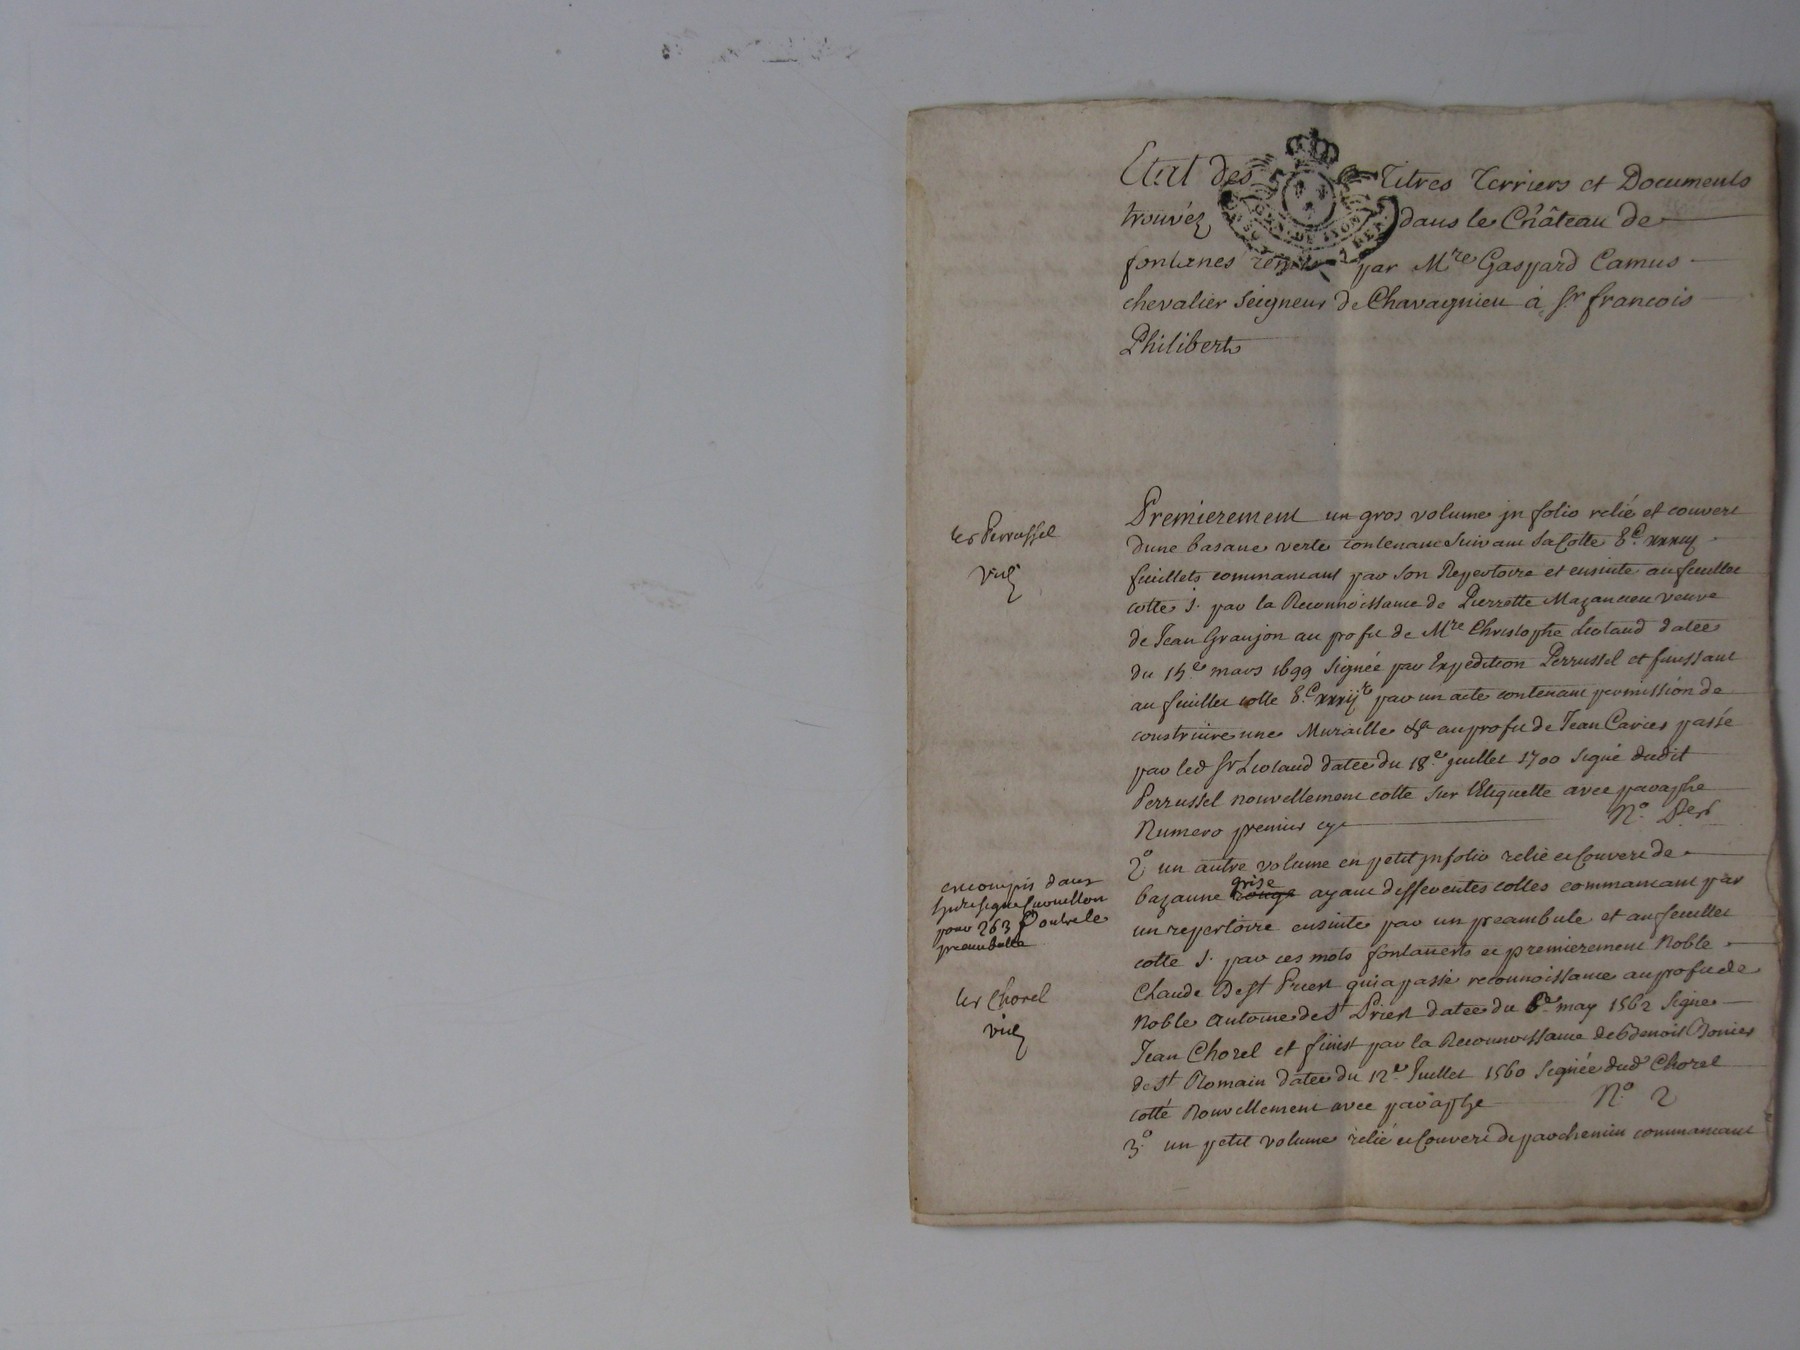 Etat des Titres Terriers et Documents
trouvéz dans le Château de
fontanes par Mre Gaspard Camus
chevalier seigneur de Chavagnieu à sr francois
Philibert
GEN. DE LYON
les Perrussel
Premierement un gros volume jn folio relié et couvert
dune basane verte contenant Suivant Sa Cotte
feuillets commancant par Son Repertoire et ensuite au feuillet
cotté 1. par la Reconnoissance de Pierrette veuve
de Jean Granjon au profit de Mre Christophe Liotaud datée
du 15e mars 1699 Signée par Expedition Perrussel et finissant
au feuillet cotté par un acte contenant permission de
construire une Muraille &a au profit de Jean Caries passé
par led sr Liotaud datée du 18e juillet 1700 signé dudit
Perrussel nouvellement cotté sur l'Etiquette avec paraphe
Numero premier cy N.o Per
2o un autre volume en petit jn folio relié et Couvert de
encompris dans
bazanne rouge grise ayant differentes cottes commancant par
pour 263 Outre le
un repertoire ensuite par un preambule et au feuillet
preambulle
cotté 1. par ces mots fontanests et premierement Noble
les Chorel
Claude De st Priest qui a passé reconnoissance au profit de
Noble Antoine de st Priest datée du may 1562 signé
Jean Chorel et finist par la Reconnoissance de Benoist
de st Romain datée du 12e Juillet 1560 signée dud Chorel
cotté Nouvellement avec paraphe N.o 2
3.o un petit volume relié et Couvert de parchemin commancant